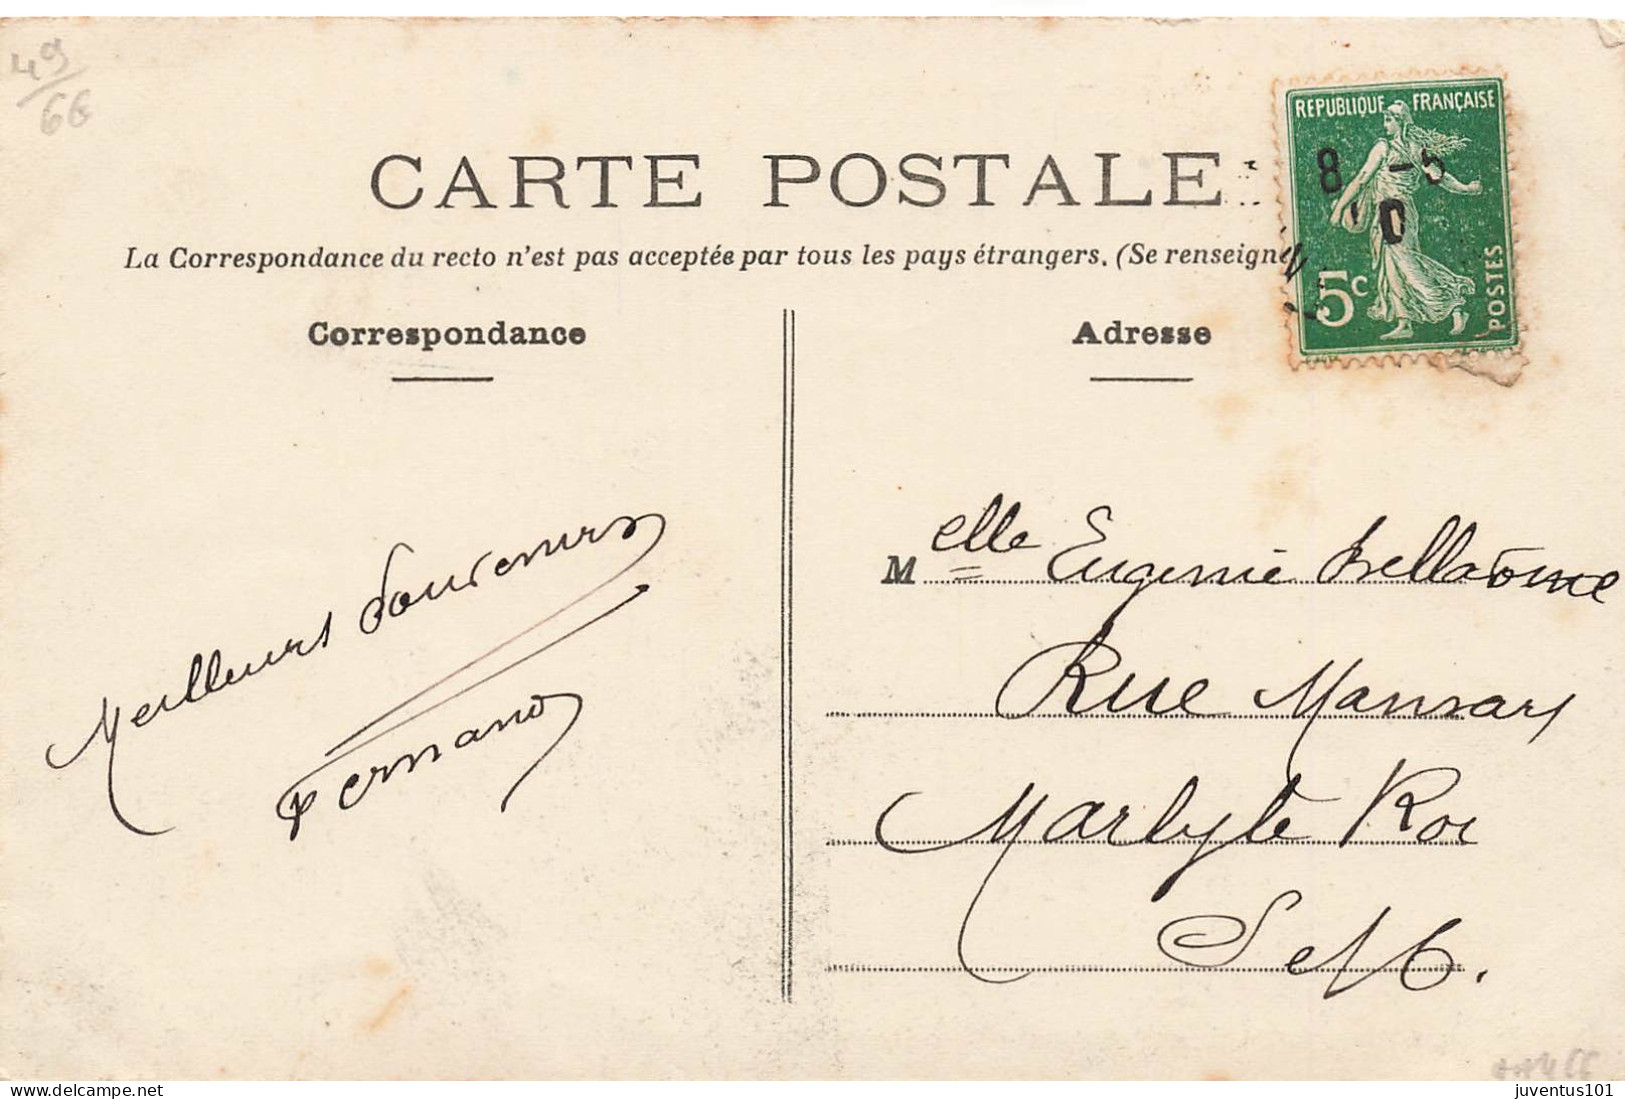 49
66
CARTE POSTALE
REPUBLIQUE FRANÇAISE
8 -5
10
5c
POSTES
La Correspondance du recto n'est pas acceptée par tous les pays étrangers. (Se renseigne
Correspondance
Adresse
Meilleurs Souvenirs
Fernand
Melle Eugenie
Rue Mansart
Marly le Roi
S et O.
juventus101